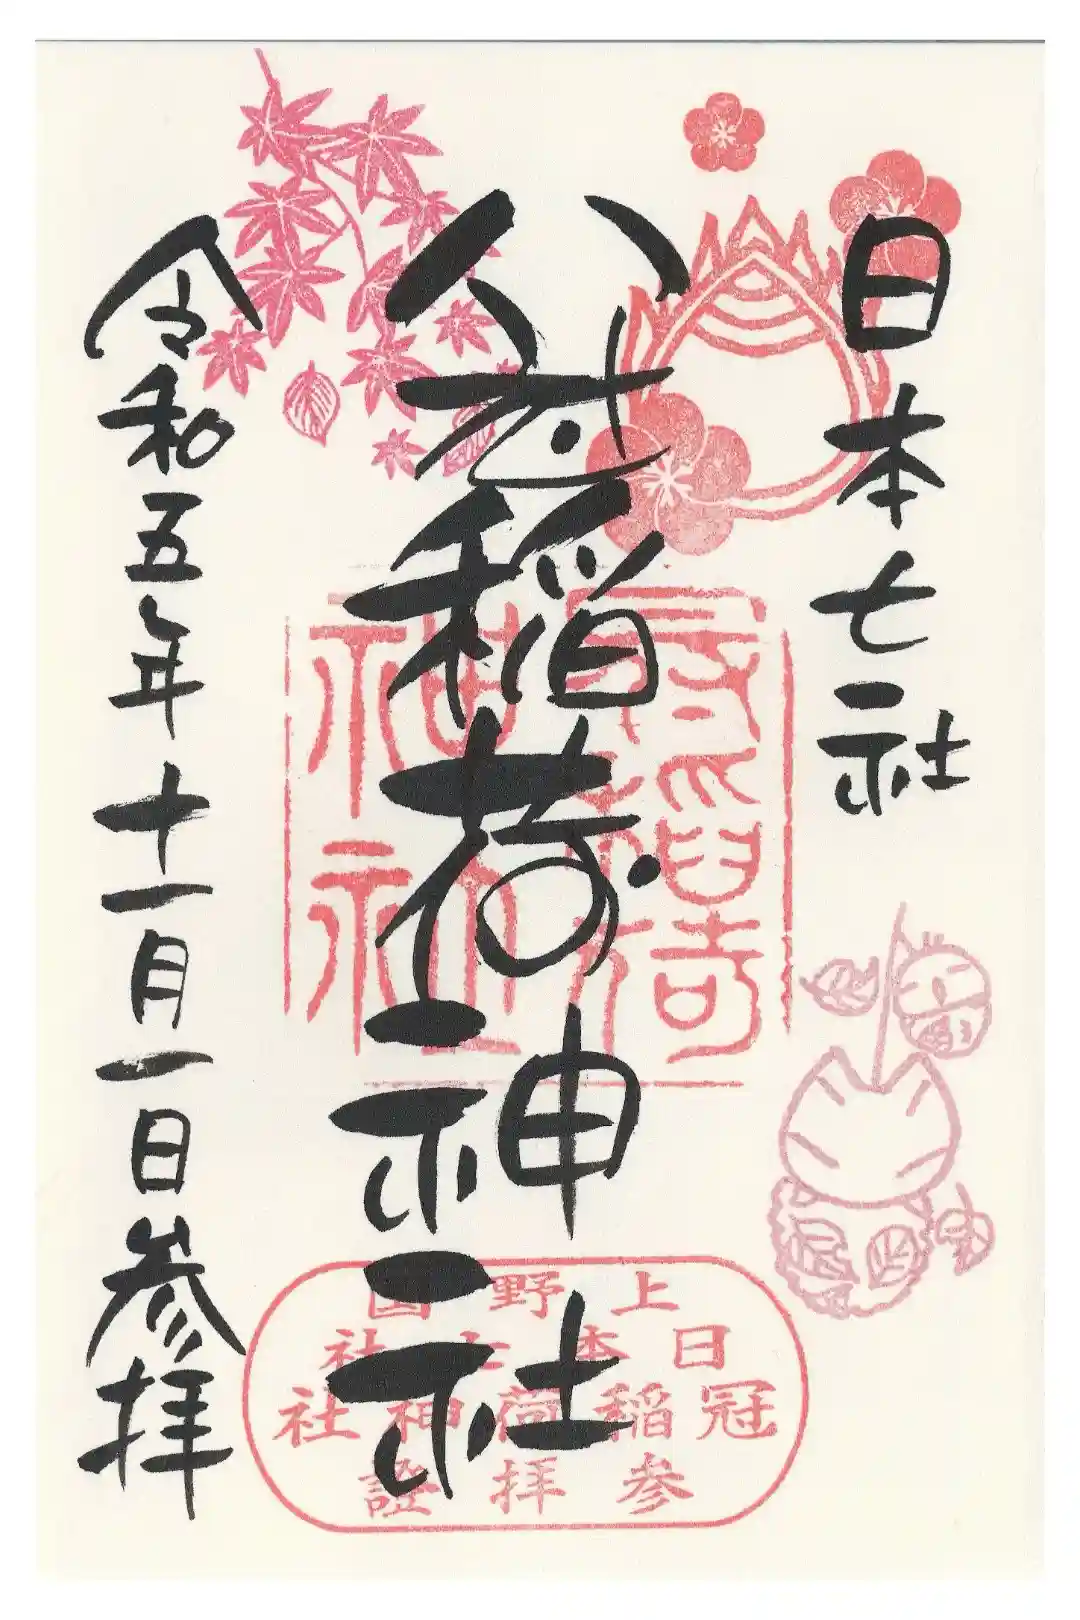 日本七社
冠稲荷神社
令和五年十一月一日参拝
上野国
日本七社
冠稲荷神社
参拝證